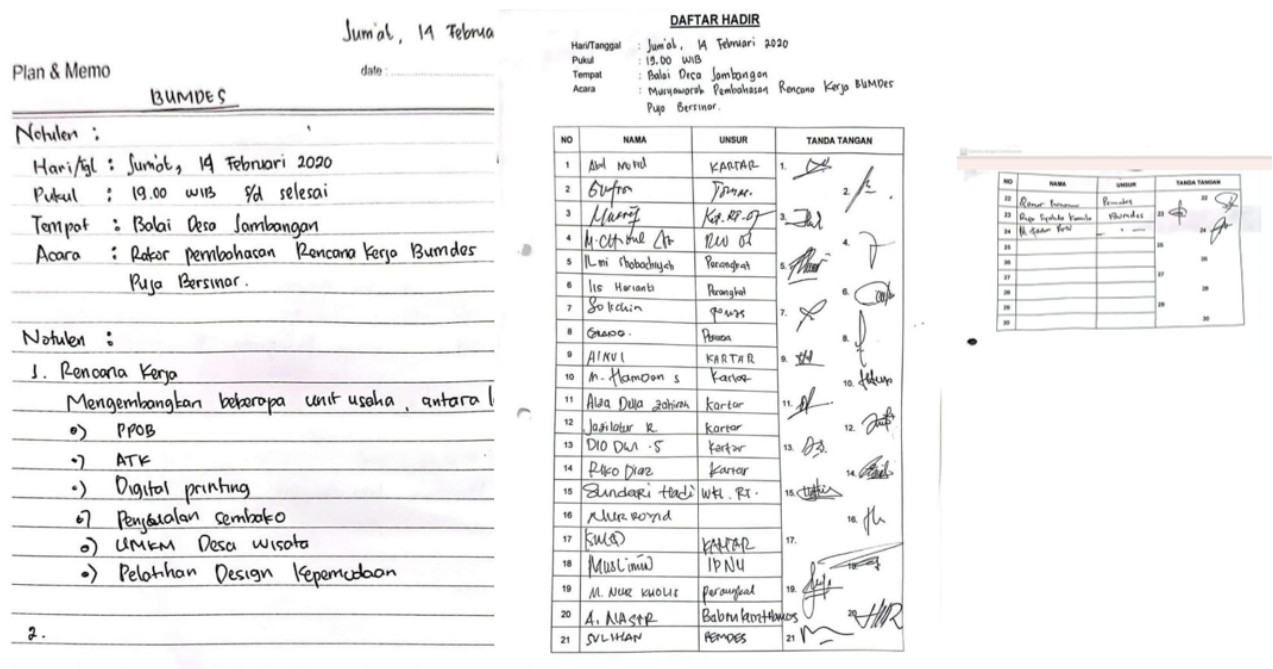 Jum'at, 14 Februa
Plan & Memo
date :
BUMDES
Notulen :
Hari/tgl : Jum'at, 14 Februari 2020
Pukul : 19.00 WIB s/d selesai
Tempat : Balai Desa Jambangan
Acara : Rakor pembahasan Rencana Kerja Bumdes
Puja Bersinar.
Notulen :
1. Rencana Kerja
Mengembangkan beberapa unit usaha, antara l
•) PPOB
•) ATK
•) Digital printing
•) Penjualan sembako
•) UMKM Desa wisata
•) Pelatihan Design Kepemudaan
2.
DAFTAR HADIR
Hari/Tanggal : Jum'at, 14 Februari 2020
Pukul : 19.00 WIB
Tempat : Balai Desa Jambangan
Acara : Musyawarah Pembahasan Rencana Kerja BUMDes
Puja Bersinar.
NO NAMA UNSUR TANDA TANGAN
1 Abd KARTAR 1.
2 Gufron 2.
3 3.
4 4.
5 Ilmi Shobachiyah Perangkat 5.
6 Iis Harianti Perangkat 6.
7 Solichin 7.
8 8.
9 AINUL KARTAR 9.
10 M. Hamdan S Kartar 10.
11 Alda Della Zahiroh Kartar 11.
12 Jazilatur R. Kartar 12.
13 DIO DWI .S Kartar 13.
14 Riko Diaz Kartar 14.
15 Sundari Hadi WKL. RT. 15.
16 NUR ROYID 16.
17 KARTAR 17.
18 Muslimin IPNU 18.
19 M. NUR KHOLIS Perangkat 19.
20 A. NASIR 20.
21 SULIHAN PEMDES 21
NO NAMA UNSUR TANDA TANGAN
22 Pemdes 22
23 Bumdes 23
24 24
25 25
26 26
27 27
28 28
29 29
30 30